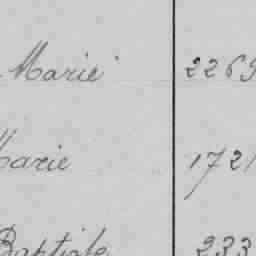 Marie 2269
Marie 1721
Baptiste 233